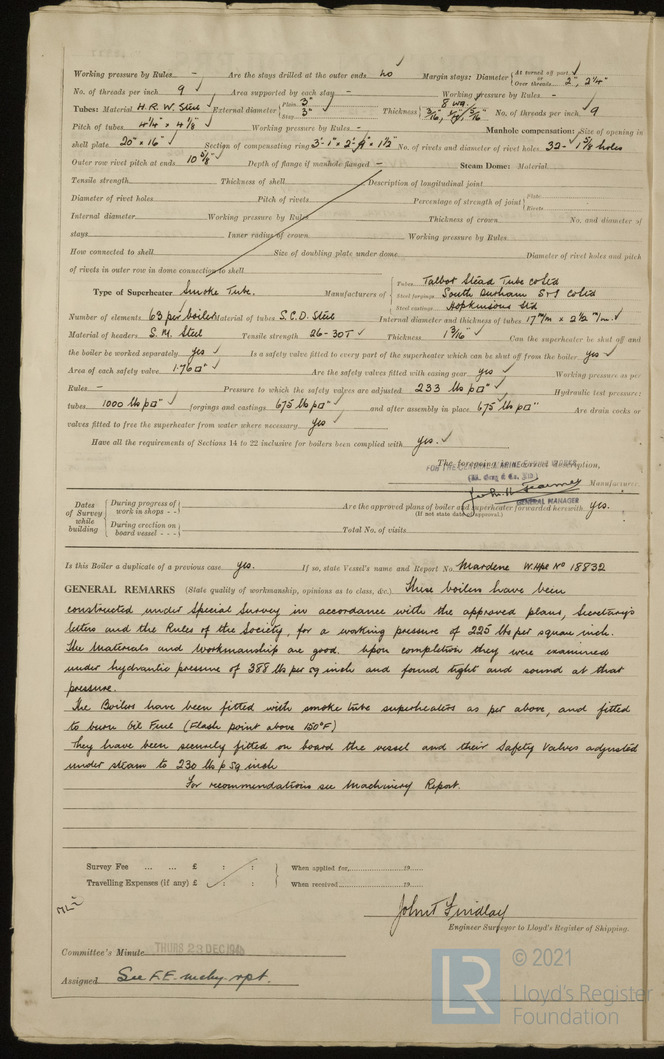 Working pressure by Rules - Are the stays drilled at the outer ends no Margin stays: Diameter { At turned off part, or Over threads 2", 2 1/4"
No. of threads per inch 9 Area supported by each stay - Working pressure by Rules -
Tubes: Material H.R.W. Steel External diameter { Plain 3" Stay 3" Thickness { 8 wg. 5/16" No. of threads per inch 9
Pitch of tubes 4 1/4" × 4 1/8" Working pressure by Rules - Manhole compensation: Size of opening in
shell plate 20" × 16" Section of compensating ring No. of rivets and diameter of rivet holes 32 - 1 5/16 holes
Outer row rivet pitch at ends 10 5/8" Depth of flange if manhole flanged - Steam Dome: Material
Tensile strength Thickness of shell Description of longitudinal joint
Diameter of rivet holes Pitch of rivets Percentage of strength of joint { Plate Rivets
Internal diameter Working pressure by Rules Thickness of crown No. and diameter of
stays Inner radius of crown Working pressure by Rules
How connected to shell Size of doubling plate under dome Diameter of rivet holes and pitch
of rivets in outer row in dome connection to shell
Type of Superheater Smoke Tube. Manufacturers of { Tubes Talbot Stead Tube Co Ltd
Steel forgings South Durham S & I Co Ltd
Steel castings Hopkinsons Ltd
Number of elements 63 per boiler Material of tubes S.C.D. Steel Internal diameter and thickness of tubes 17 m/m × 2 1/2 m/m.
Material of headers S.M. Steel Tensile strength 26-30T Thickness 1 3/16" Can the superheater be shut off and
the boiler be worked separately yes Is a safety valve fitted to every part of the superheater which can be shut off from the boiler yes
Area of each safety valve 1.76 □" Are the safety valves fitted with easing gear yes Working pressure as per
Rules - Pressure to which the safety valves are adjusted 233 lbs p □" Hydraulic test pressure:
tubes 1000 lbs p □" forgings and castings 675 lbs p □" and after assembly in place 675 lbs p □" Are drain cocks or
valves fitted to free the superheater from water where necessary yes
Have all the requirements of Sections 14 to 22 inclusive for boilers been complied with yes.
The foregoing is a correct description,
Manufacturer.
GENERAL MANAGER
Dates of Survey while building { During progress of work in shops - - Are the approved plans of boiler and superheater forwarded herewith yes.
(If not state date of approval.)
During erection on board vessel - - - Total No. of visits
Is this Boiler a duplicate of a previous case yes. If so, state Vessel's name and Report No. Mardene W.Hpl No 18832
GENERAL REMARKS (State quality of workmanship, opinions as to class, &c.) These boilers have been
constructed under Special Survey in accordance with the approved plans, Secretary's
letters and the Rules of the Society, for a working pressure of 225 lbs per square inch.
The Materials and Workmanship are good. Upon completion they were examined
under hydraulic pressure of 388 lbs per sq inch and found tight and sound at that
pressure.
The Boilers have been fitted with smoke tube superheaters as per above, and fitted
to burn Oil Fuel (Flash point above 150°F)
They have been securely fitted on board the vessel and their Safety Valves adjusted
under steam to 230 lbs p sq inch
For recommendations see Machinery Report.
Survey Fee ... ... £ : : When applied for, 19
Travelling Expenses (if any) £ : : When received 19
John T Findlay
Engineer Surveyor to Lloyd's Register of Shipping.
Committee's Minute THURS 23 DEC
Assigned See F.E. mchy. rpt.
LR © 2021
Lloyd's Register
Foundation